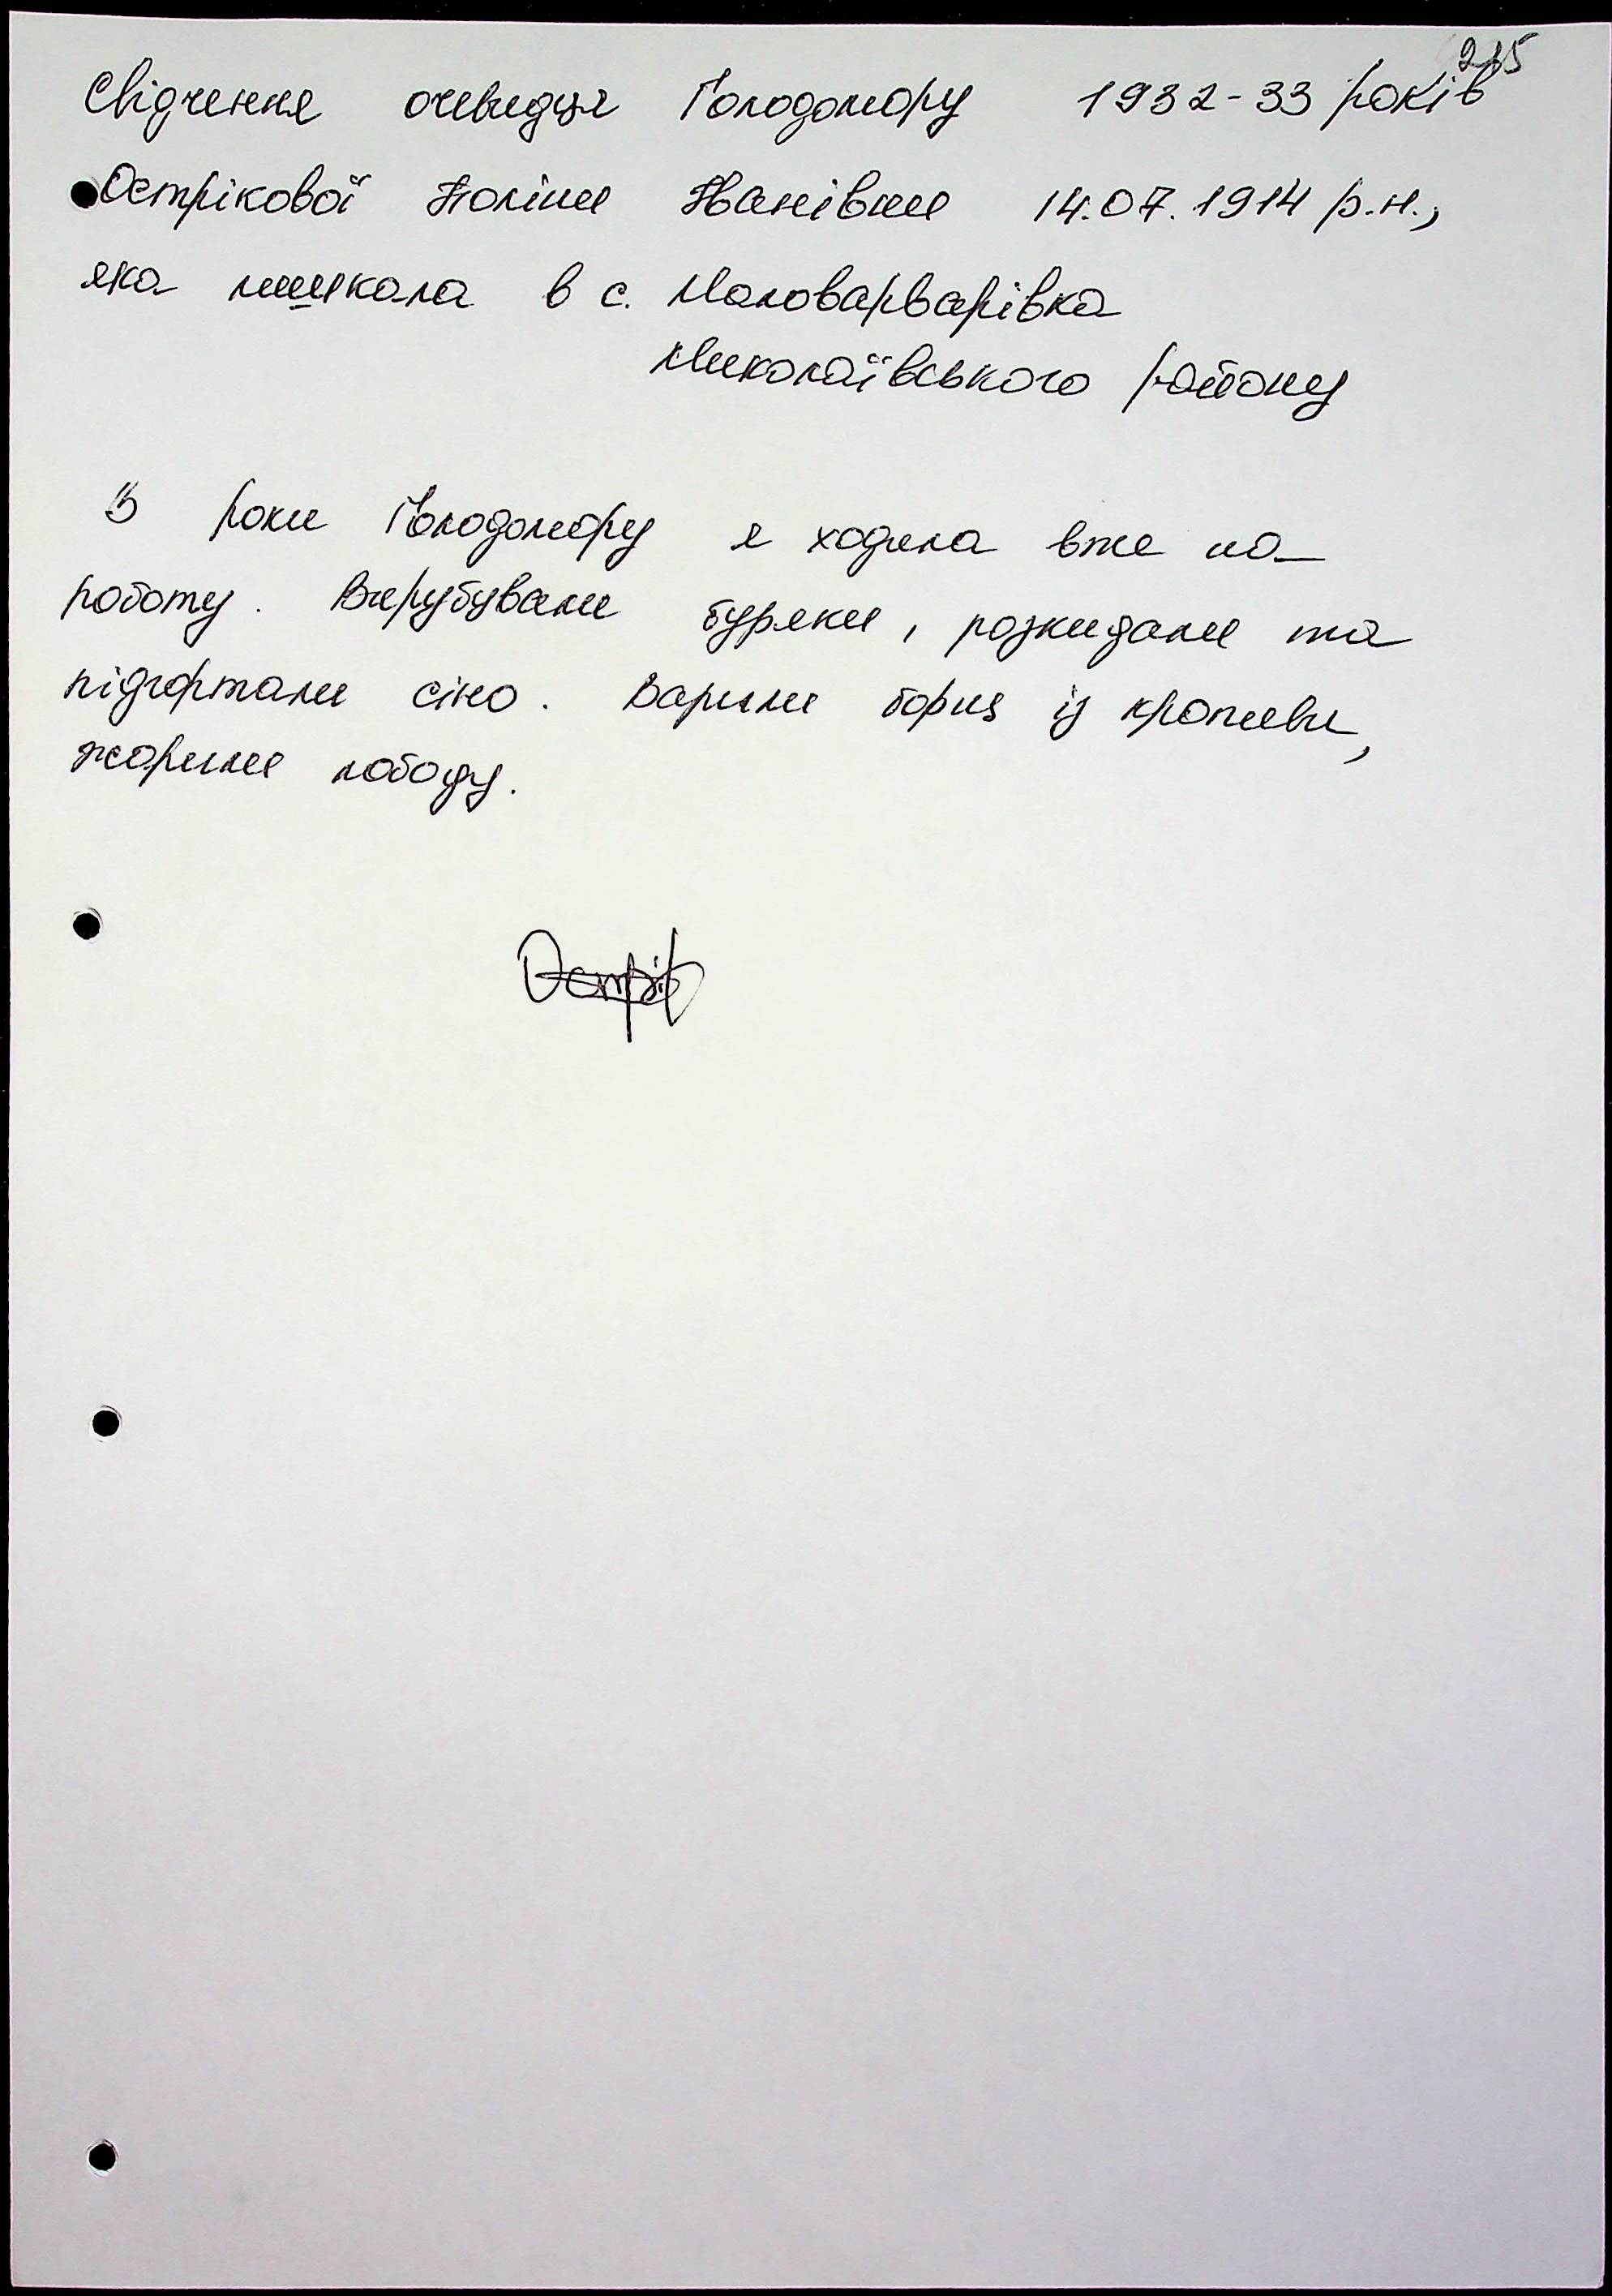 215
Свідчення очевидця Голодомору 1932-33 років
Острікової Поліни Іванівни 14.07.1914 р.н.,
яка мешкала в с. Маловарварівка
Миколаївського району
В роки Голодомору я ходила вже на
роботу. Вирубували буряки, розкидали та
підгортали сіно. Варили борщ із кропиви,
жарили лободу.